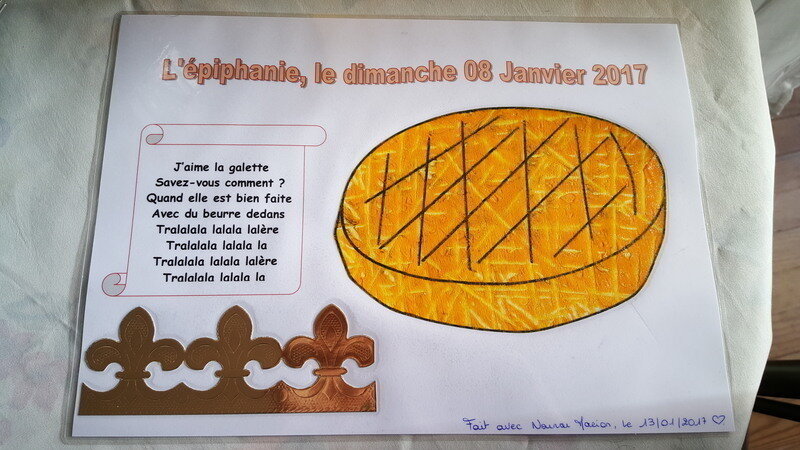 L'épiphanie, le dimanche 08 Janvier 2017
J'aime la galette
Savez-vous comment ?
Quand elle est bien faite
Avec du beurre dedans
Tralalala lalala lalère
Tralalala lalala la
Tralalala lalala lalère
Tralalala lalala la
Fait avec Nounou Marion, le 13/01/2017 ♡